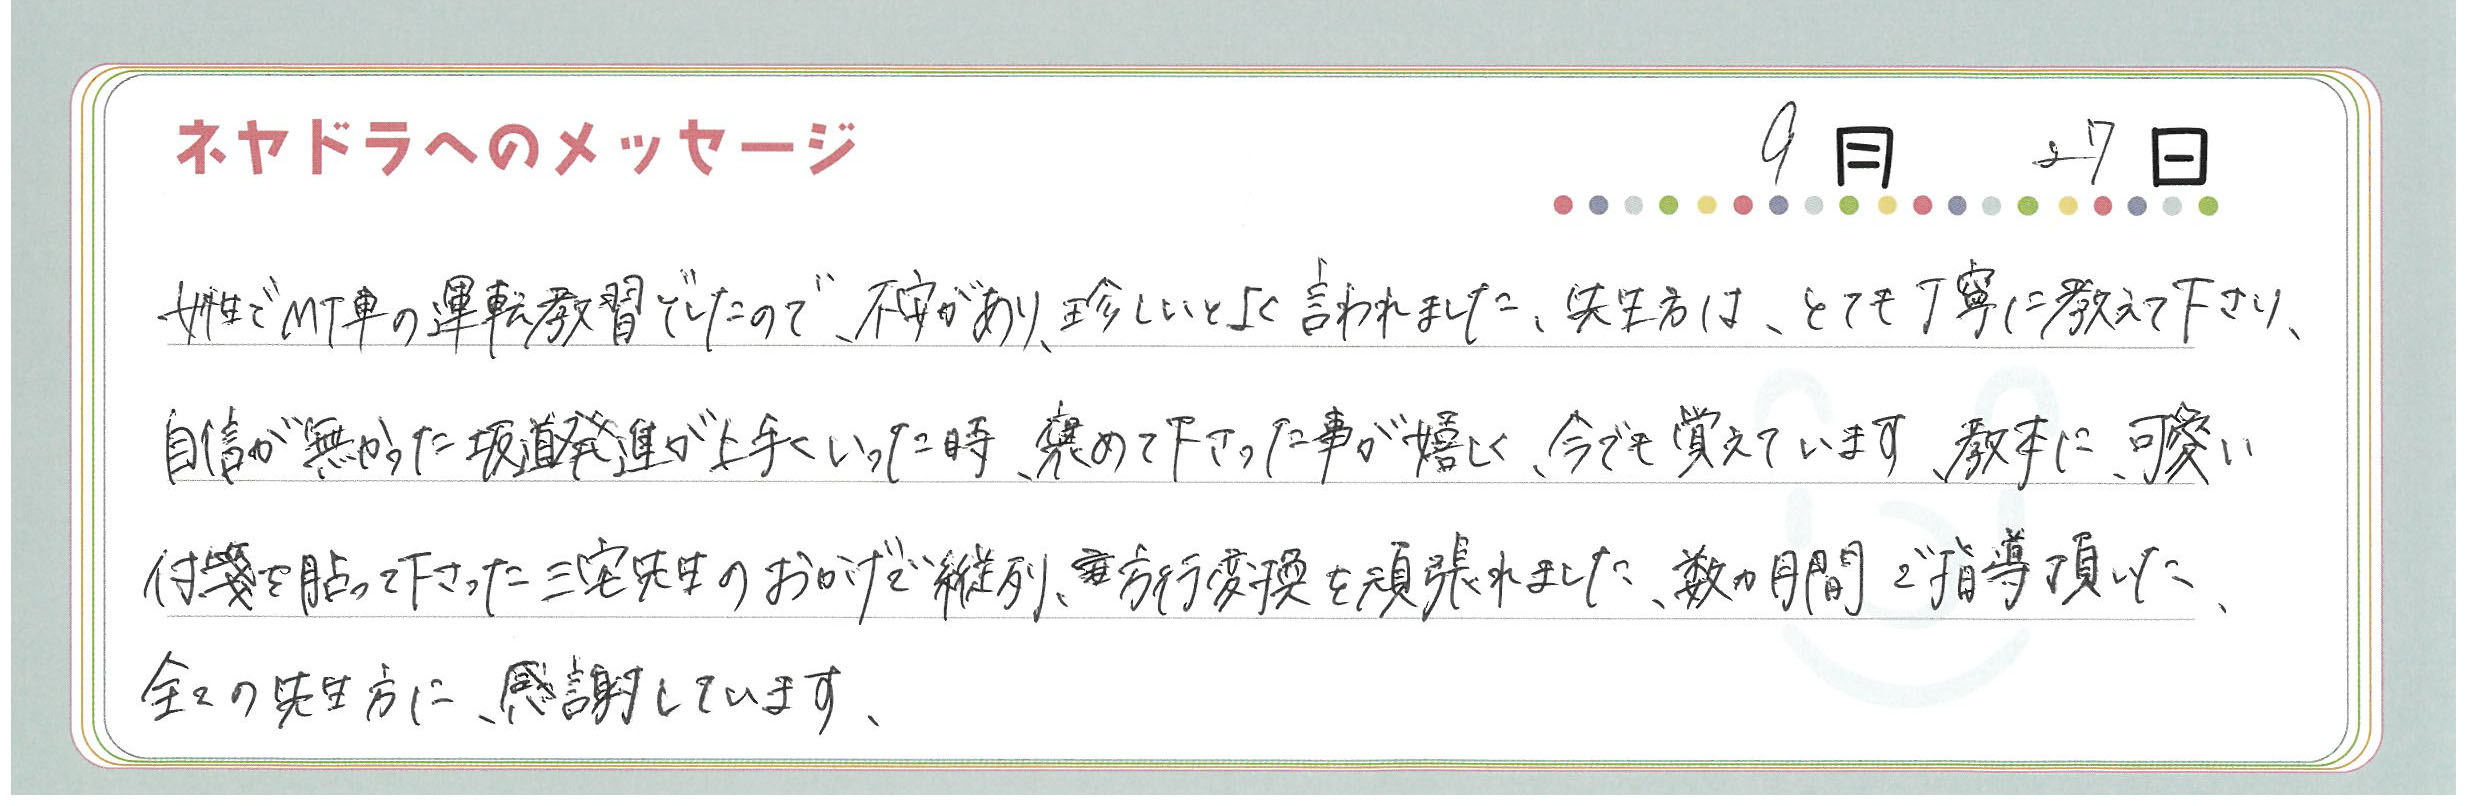 ネヤドラへのメッセージ
9月 27日
女性でMT車の運転教習でしたので、不安があり、珍しいとよく言われました、先生方は、とても丁寧に教えて下さり、
自信が無かった坂道発進が上手くいった時、褒めて下さった事が嬉しく、今でも覚えています、教本に、可愛い
付箋を貼って下さった三宅先生のおかげで縦列、方行変換を頑張れました、数カ月間ご指導頂いた、
全ての先生方に、感謝しています、